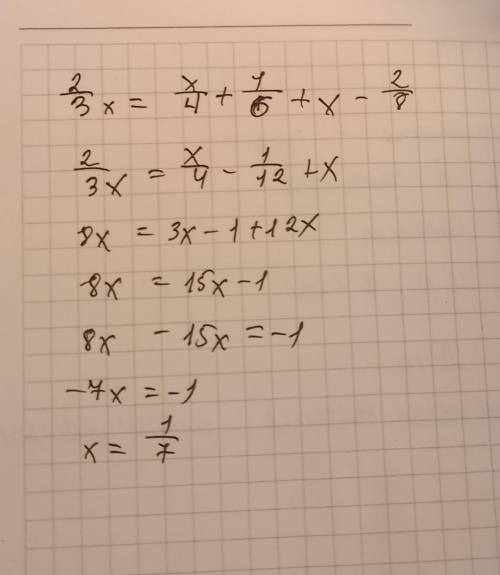 2/3 x = x/4 + 1/6 + x - 2/8
2/3x = x/4 - 1/12 + x
8x = 3x - 1 + 12x
8x = 15x - 1
8x - 15x = -1
-7x = -1
x = 1/7